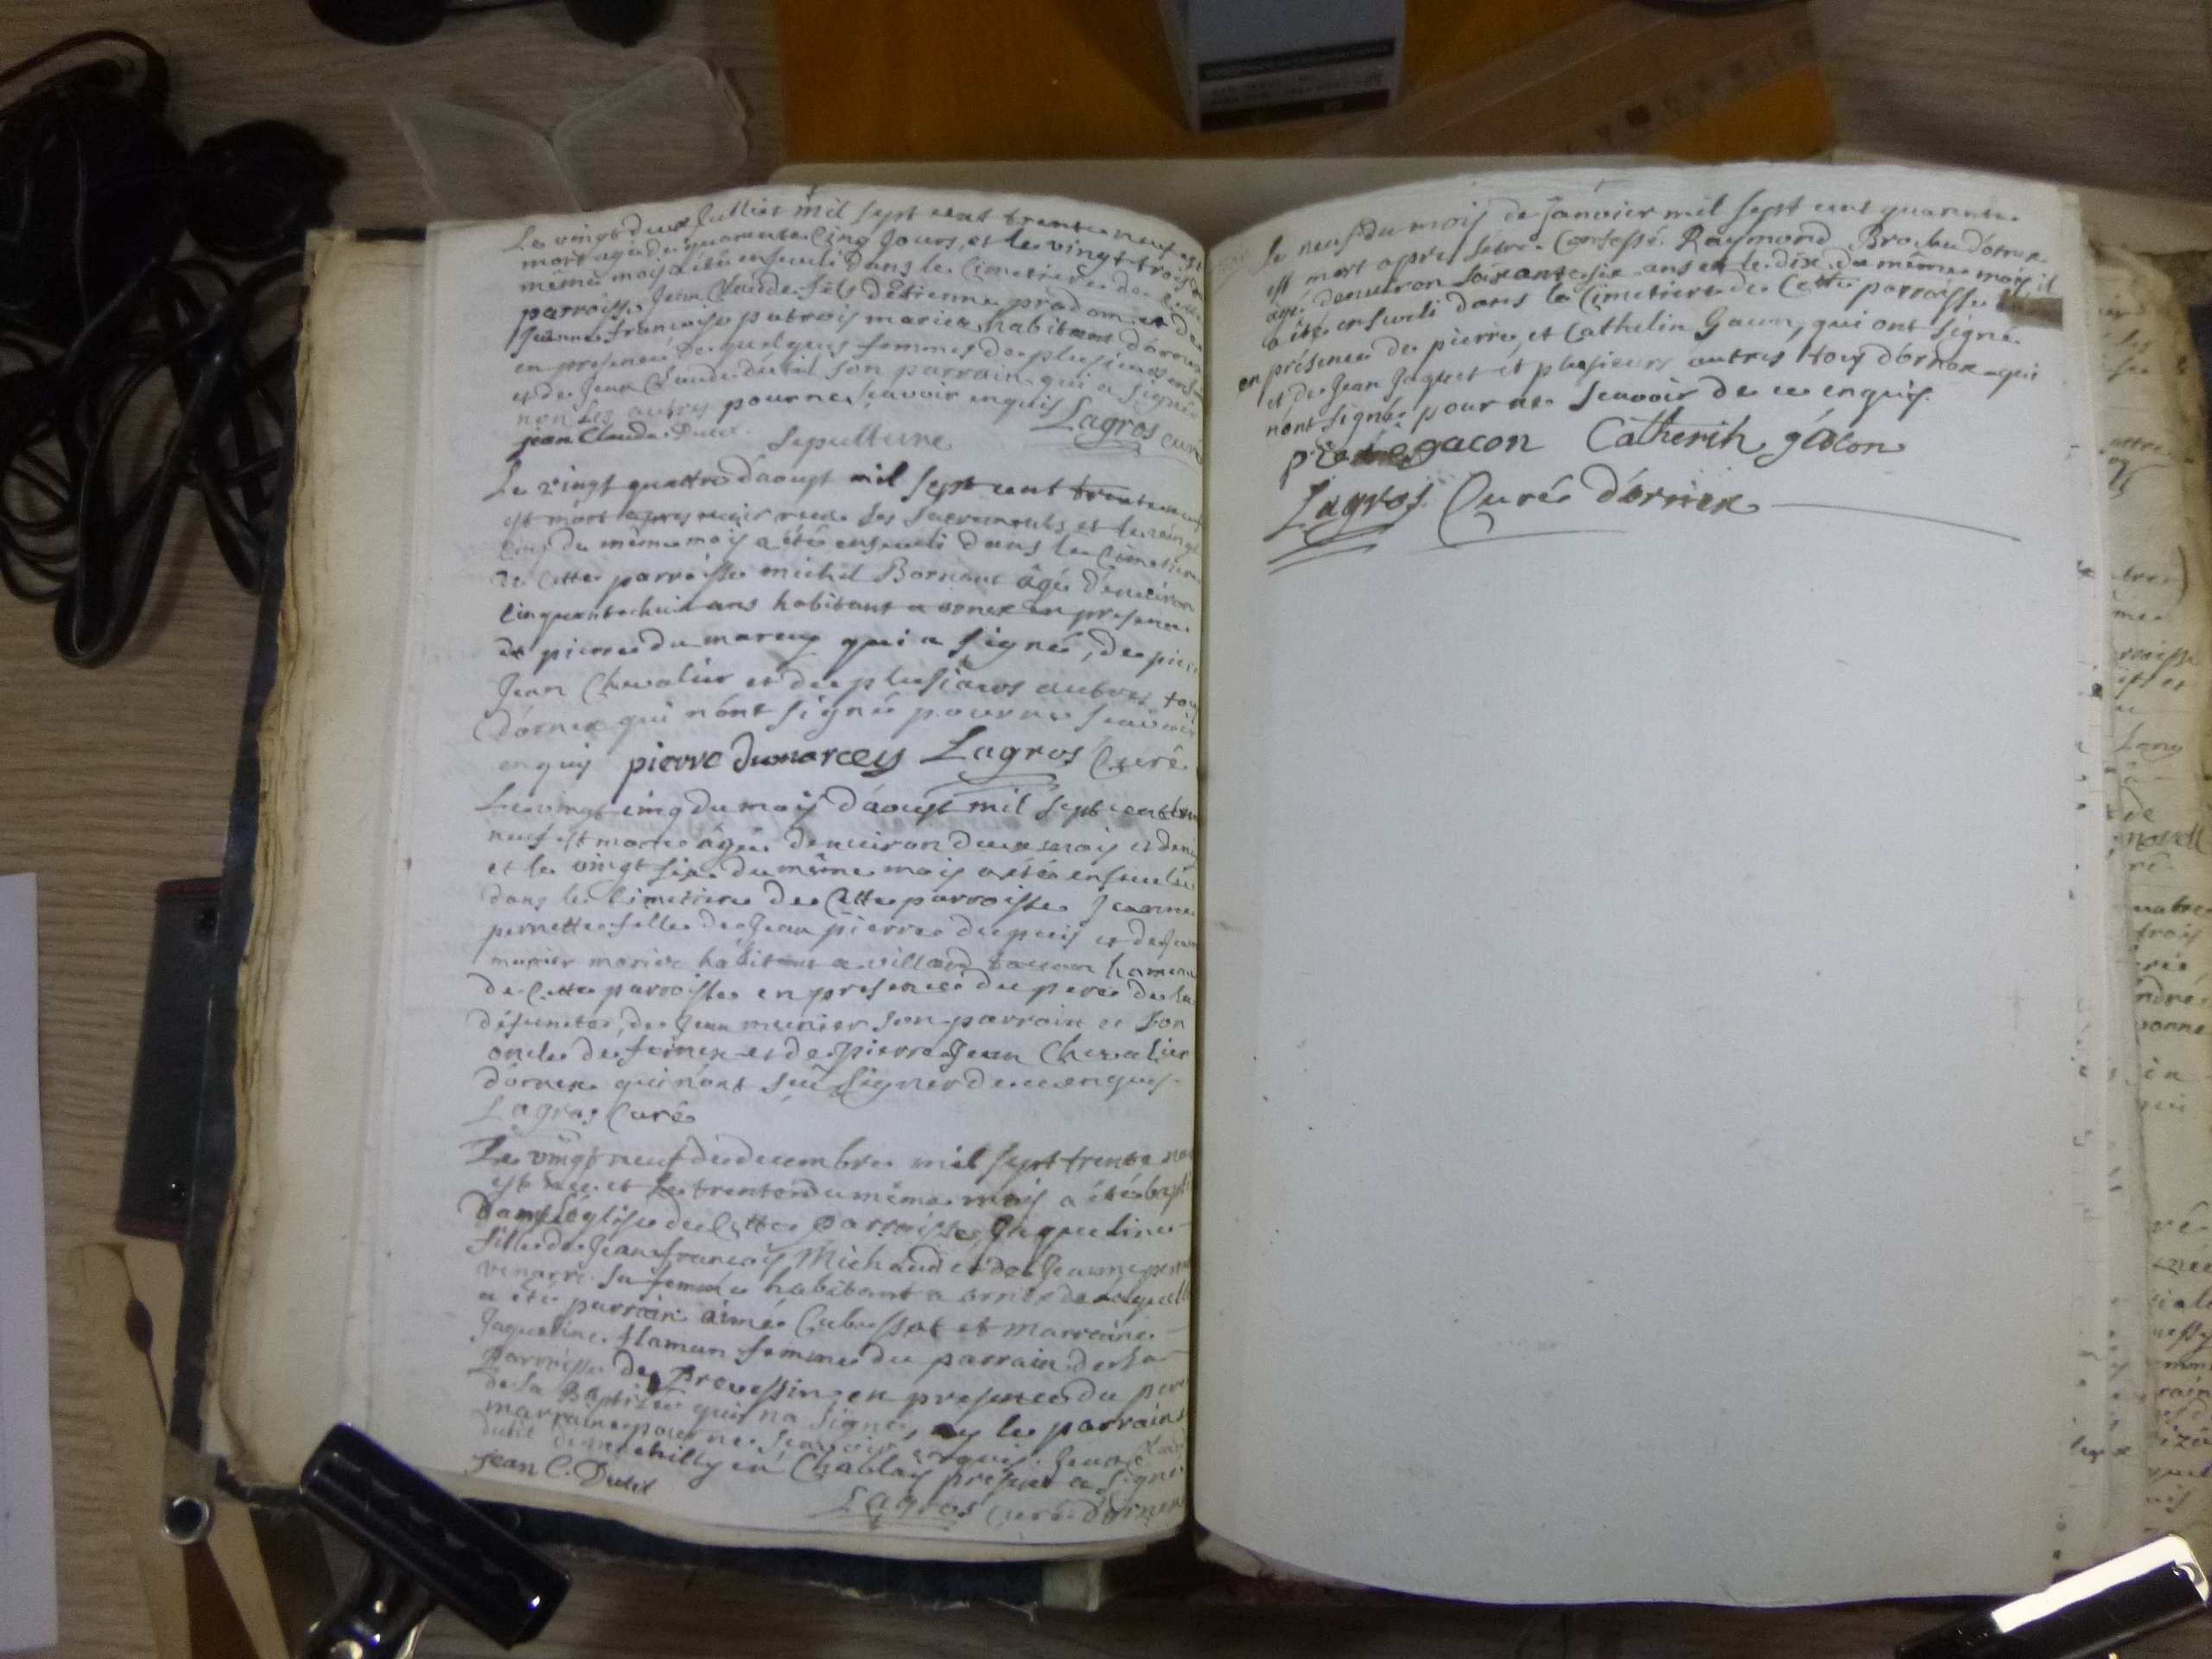 Le vingt deux Juilliet mil sept cent trente neuf est
mort agé de quarente cinq Jours, et le vingt trois du
même mois a été enseveli dans le Cimetiere de cette
parroisse Jean Claude fils d'étienne pradon et de
Jeanne françoise patrois mariez habitant d'ornex
en presence de quelques femmes de plusieurs enfans
et de Jean Claude dutil son parrain qui a signé
non les autres pour ne scavoir enquis Lagros curé
jean Claude Dutil
Sepulture
Le vingt quattre d'aoust mil sept cent trente neuf
est mort apres avoir receu les sacrements et le vingt
cinq du même mois a été enseveli dans le Cimetiere
de cette parroisse michel Bornant âgé d'environ
cinquante huit ans habitant a ornex en presence
de pierre du marcey qui a signé, de pierre
Jean Chevalier et de plusieurs autres tous
d'ornex qui n'ont signé pour ne scavoir
enquis pierre dumarcey Lagros Curé
Le vingt cinq du mois d'aoust mil sept cent trente
neuf est morte âgée d'environ deux mois et demi
et le vingt six du même mois a été ensevelie
dans le Cimetiere de cette parroisse Jeanne
pernette fille de Jean pierre dupuis et de Jeanne
munier mariez habitant a villard hameau
de cette parroisse en presence du pere de la
défuncte, de Jean munier son parrain et son
oncle de et de pierre Jean Chevalier
d'ornex qui n'ont sceu signer de ce enquis.
Lagros Curé
Le vingt neuf de decembre mil sept trente neuf
est née et le trente du même mois a été baptisée
dans l'église de cette Parroisse Jaqueline
fille de Jean françois Michaud et de Jeanne
sa femme habitant a ornex de laquelle
a été parrain aimé Cabussat et marraine
Jaqueline flamen femme du parrain de la
Parroisse de Prevessin en presence du pere
de la Baptisée qui n'a signé, ny le parrain
marraine pour ne scavoir enquis. Jean Claude
dutil de machilly en Chablais present a signé
jean C. Dutil
Lagros curé d'ornex
Le neuf du mois de Janvier mil sept cent quarente
est mort apres s'être Confessé Raymond Brochu d'ornex
agé d'environ soixante six ans et le dix du même mois il
a été enseveli dans le Cimetiere de Cette parroisse
en présence de pierre et Cathelin Gacon, qui ont signé
et de Jean Jaquet et plusieurs autres tous d'ornex qui
n'ont signé pour ne scavoir de ce enquis.
pierre gacon Catherin gacon
Lagros Curé d'ornex